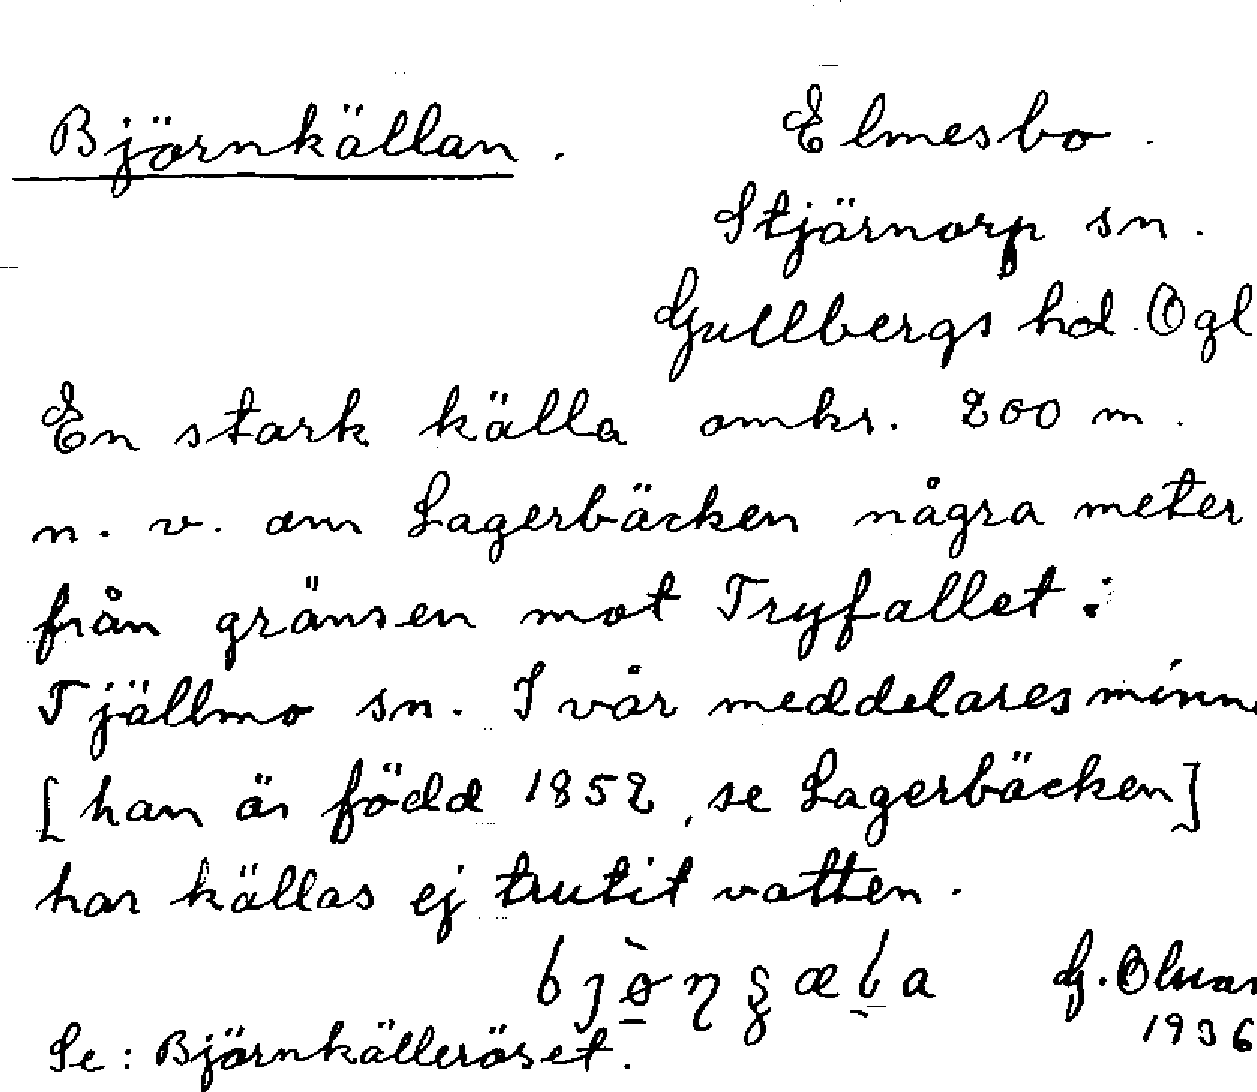 Björnkällan.
Elmesbo.
Stjärnorp sn.
Gullbergs hd. Ögl
En stark källa omkr. 200 m.
n. v. om Lagerbäcken några meter
från gränsen mot Tryfallet i
Tjällmo sn. I vår meddelares minn
[han är född 1852, se Lagerbäcken]
har källas ej trutit vatten.
G.
1936
Se: Björnkälleröset.